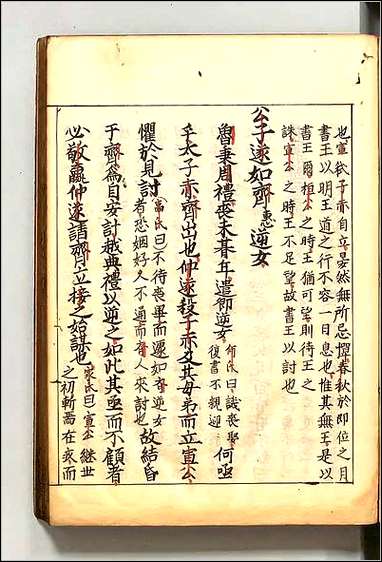 也宣弒子赤自立晏然無所忌憚春秋於即位之月
書王以明王道之行不容一日息也惟其無王是以
書王爾桓公之時王猶可望則待王之
誅宣公之時王不足望故書王以討也
公子遂如齊逆女
魯秉周禮喪未朞年遣卿逆女何亟
何氏曰譏喪娶
復書不親迎
乎太子赤齊出也仲遂殺子赤及其母弟而立宣公
懼於見討故結昏
高氏曰不待喪畢而遽如齊逆女
者恐姻好久不通而齊人來討也
于齊為自安計越典禮以逆之如此其亟而不顧者
必敬嬴仲遂請齊立接之始謀也
家氏曰宣公繼世
之初斬焉在衰而